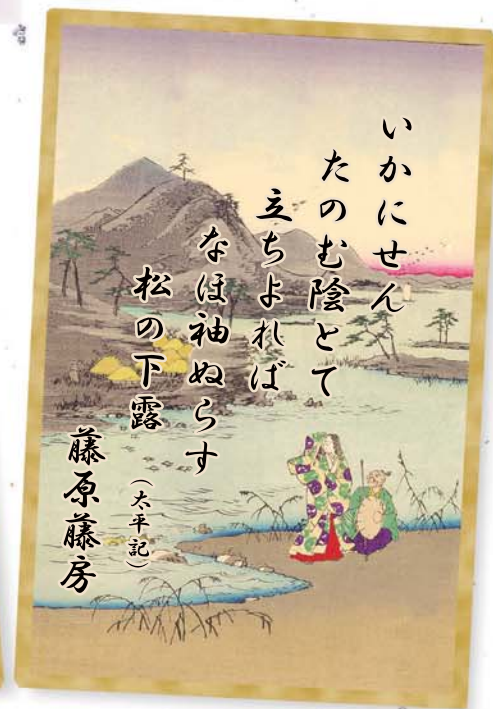 いかにせん
たのむ陰とて
立ちよれば
なほ袖ぬらす
松の下露
(太平記)
藤原藤房